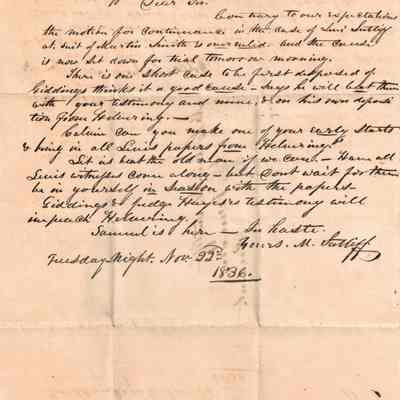 Dear Sir.
Contrary to our expectations
the motion for continuance in the case of Levi Sutliff
at suit of Martin Smith is overruled. and the cause
is now set down for trial tomorrow morning.
There is one short case to be first disposed of
Giddings thinks it a good cause - Says he will beat them
with your testimony and mine, & on his own deposi
tion from Helmering. -
Calvin Can you make one of your early Starts
& bring in all Levis papers from Helmering.
Let us beat the old man if we can. - Have all
Levis witnesses come along - but dont wait for them
be in yourself in Season with the papers -
Giddings & Judge Hayes's testimony will
impeach Helmering.
Samuel is here - In haste.
Yours. M. Sutliff
Tuesday Night. Nov. 22d
1836.